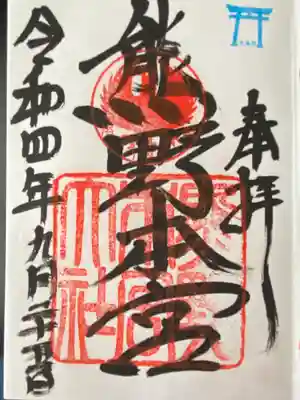 奉拝
熊野本宮
大社
令和四年九月二十五日